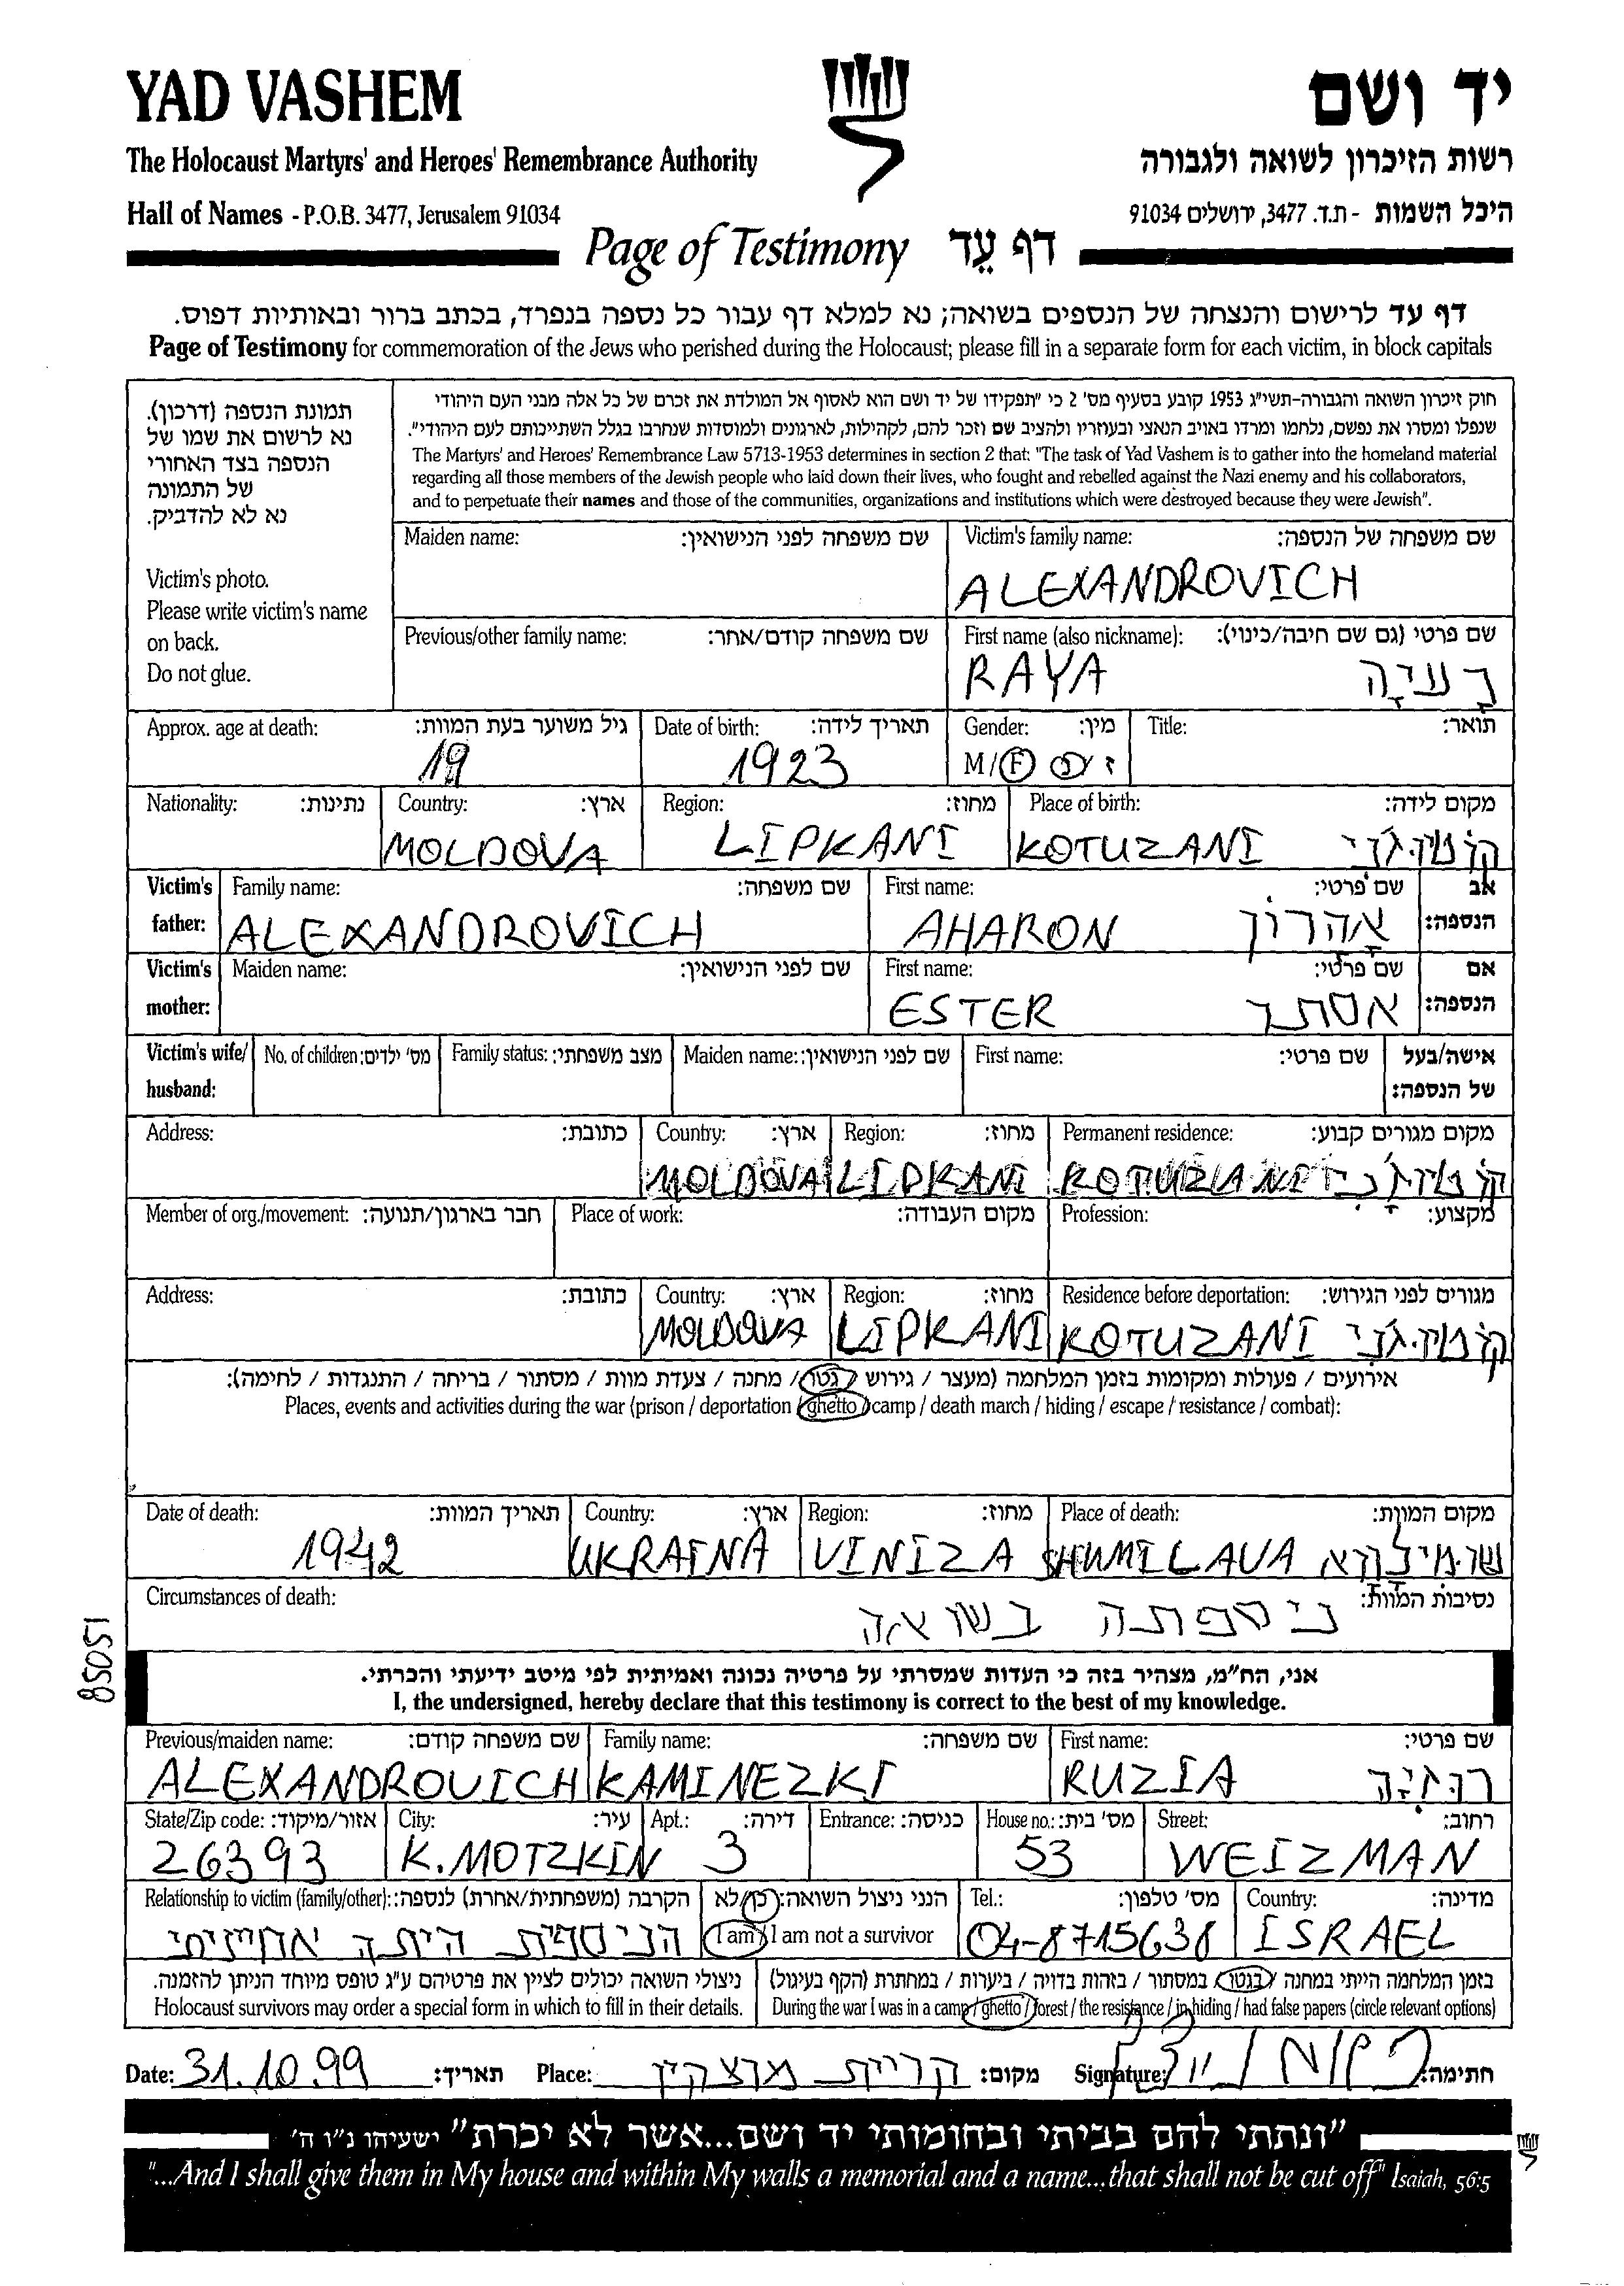 YAD VASHEM
יד ושם
The Holocaust Martyrs' and Heroes' Remembrance Authority
רשות הזיכרון לשואה ולגבורה
Hall of Names - P.O.B. 3477, Jerusalem 91034
היכל השמות - ת.ד. 3477, ירושלים 91034
Page of Testimony דף עֵד
דף עד לרישום והנצחה של הנספים בשואה; נא למלא דף עבור כל נספה בנפרד, בכתב ברור ובאותיות דפוס.
Page of Testimony for commemoration of the Jews who perished during the Holocaust; please fill in a separate form for each victim, in block capitals
תמונת הנספה (דרכון).
נא לרשום את שמו של
הנספה בצד האחורי
של התמונה
נא לא להדביק.
Victim's photo.
Please write victim's name
on back.
Do not glue.
חוק זיכרון השואה והגבורה-תשי"ג 1953 קובע בסעיף מס' 2 כי "תפקידו של יד ושם הוא לאסוף אל המולדת את זכרם של כל אלה מבני העם היהודי
שנפלו ומסרו את נפשם, נלחמו ומרדו באויב הנאצי ובעוזריו ולהציב שם וזכר להם, לקהילות, לארגונים ולמוסדות שנחרבו בגלל השתייכותם לעם היהודי".
The Martyrs' and Heroes' Remembrance Law 5713-1953 determines in section 2 that: "The task of Yad Vashem is to gather into the homeland material
regarding all those members of the Jewish people who laid down their lives, who fought and rebelled against the Nazi enemy and his collaborators,
and to perpetuate their names and those of the communities, organizations and institutions which were destroyed because they were Jewish".
Maiden name: שם משפחה לפני הנישואין:
Victim's family name: שם משפחה של הנספה:
ALEXANDROVICH
Previous/other family name: שם משפחה קודם/אחר:
First name (also nickname): שם פרטי (גם שם חיבה/כינוי):
RAYA רעיה
Approx. age at death: גיל משוער בעת המוות: Date of birth: תאריך לידה: Gender: מין: Title: תואר:
19 1923 M / F ז / נ
Nationality: נתינות: Country: ארץ: Region: מחוז: Place of birth: מקום לידה:
MOLDOVA LIPKANI KOTUZANI
Victim's father: Family name: שם משפחה: First name: שם פרטי: אב הנספה:
ALEXANDROVICH AHARON אהרון
Victim's mother: Maiden name: שם לפני הנישואין: First name: שם פרטי: אם הנספה:
ESTER אסתר
Victim's wife/ husband: No. of children: מס' ילדים: Family status: מצב משפחתי: Maiden name: שם לפני הנישואין: First name: שם פרטי: אישה/בעל של הנספה:
Address: כתובת: Country: ארץ: Region: מחוז: Permanent residence: מקום מגורים קבוע:
MOLDOVA LIPKANI KOTUZANI
Member of org./movement: חבר בארגון/תנועה: Place of work: מקום העבודה: Profession: מקצוע:
Address: כתובת: Country: ארץ: Region: מחוז: Residence before deportation: מגורים לפני הגירוש:
MOLDOVA LIPKANI KOTUZANI
אירועים / פעולות ומקומות בזמן המלחמה (מעצר / גירוש / גטו / מחנה / צעדת מוות / מסתור / בריחה / התנגדות / לחימה):
Places, events and activities during the war (prison / deportation / ghetto / camp / death march / hiding / escape / resistance / combat):
Date of death: תאריך המוות: Country: ארץ: Region: מחוז: Place of death: מקום המוות:
1942 UKRAINA VINIZA SHUMILAVA שומילווא
Circumstances of death: נסיבות המוות:
ניספתה בשואה
85051
אני, הח"מ, מצהיר בזה כי העדות שמסרתי על פרטיה נכונה ואמיתית לפי מיטב ידיעתי והכרתי.
I, the undersigned, hereby declare that this testimony is correct to the best of my knowledge.
Previous/maiden name: שם משפחה קודם: Family name: שם משפחה: First name: שם פרטי:
ALEXANDROVICH KAMINEZKI RUZIA רוזיה
State/Zip code: אזור/מיקוד: City: עיר: Apt.: דירה: Entrance: כניסה: House no.: מס' בית: Street: רחוב:
26393 K.MOTZKIN 3 53 WEIZMAN
Relationship to victim (family/other): הקרבה (משפחתית/אחרת) לנספה: הנני ניצול השואה: כן/לא Tel.: מס' טלפון: Country: מדינה:
הניספית היתה אחייניתי I am / I am not a survivor 04-8715638 ISRAEL
ניצולי השואה יכולים לציין את פרטיהם ע"ג טופס מיוחד הניתן להזמנה.
Holocaust survivors may order a special form in which to fill in their details.
בזמן המלחמה הייתי במחנה / בגטו / במסתור / בזהות בדויה / ביערות / במחתרת (הקף בעיגול)
During the war I was in a camp / ghetto / forest / the resistance / in hiding / had false papers (circle relevant options)
Date: 31.10.99 תאריך: Place: קריית מוצקין מקום: Signature: חתימה:
"ונתתי להם בביתי ובחומותי יד ושם...אשר לא יכרת" ישעיהו נ"ו ה'
"...And I shall give them in My house and within My walls a memorial and a name...that shall not be cut off" Isaiah, 56:5